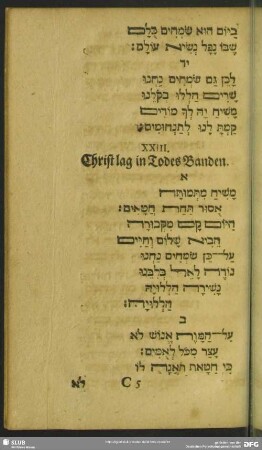 ביום הוא שמחים כלם
שבו נפל נשיא עולם:
יד
לכן גם שמחים נחנו
שרים הללו בקלנו
משיח יה לך מורים
קמת לנו לתנחומים:
XXIII.
Christ lag in Todes Banden.
א
משיח מתמותה
אסור תחת חטאים:
היום קם מקבורה
הביא שלום וחיים
על־כן שמחים נחנו
נודה לאל בלבנו
נשירה הללויה
הללויה:
ב
על־המות אנוש לא
עצר מכל לאמים:
כי חטאת האנה לו
C 5 לא
SLUB
DFG